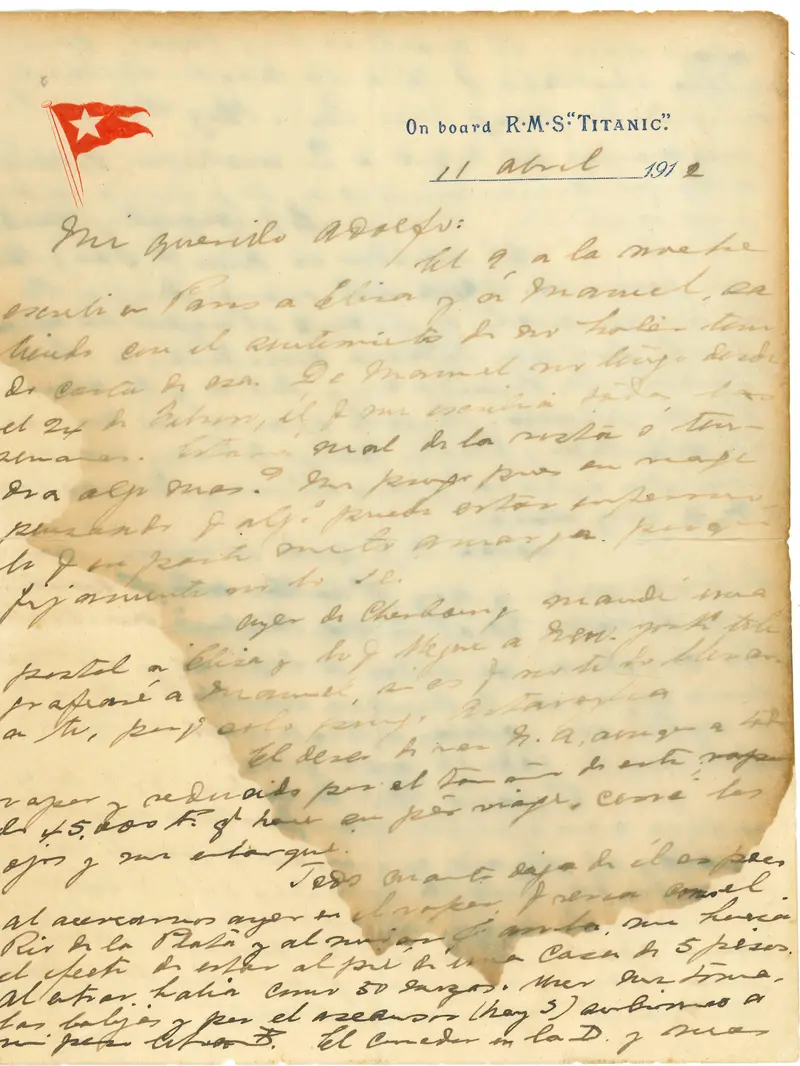 On board R·M·S·"TITANIC".
11 abril 1912
Mi querido Adolfo:
El 9 a la noche
escribi en Paris a Elisa y á Manuel, sa
liendo con el sentimiento de no haber teni
do carta de esa. De Manuel no tengo desde
el 24 de Febrero, él q me escribia todas las
semanas. Estará mal de la vista ó ten
drá algo mas? Me pongo pues en viage
pensando q algo puede estar enfermo
lo q en parte me lo amarga. porque
fijamente no lo sé.
ayer de Cherbourg mandé una
postal a Elisa y hoy q llegue a New-York tele
grafiaré a Manuel, si es q no te lo
a ti, porq solo
El deseo de ver N. A, aunque a todo
vapor y reducido por el tamaño de este vapor
de 45.000 Ts. q hace su per viage, cerré los
ojos y me embarqué.
Todo cuanto diga de él es poco
al acercarnos ayer en el vapor q
Rio de la Plata y al mirar q arriba, me hacia
el efecto de estar al pié de una casa de 5 pisos.
Al entrar habia como 50 mozos. Uno me toma
las balijas y por el ascensor (hay 3) subimos a
mi piso D. El comedor en la D. y mas